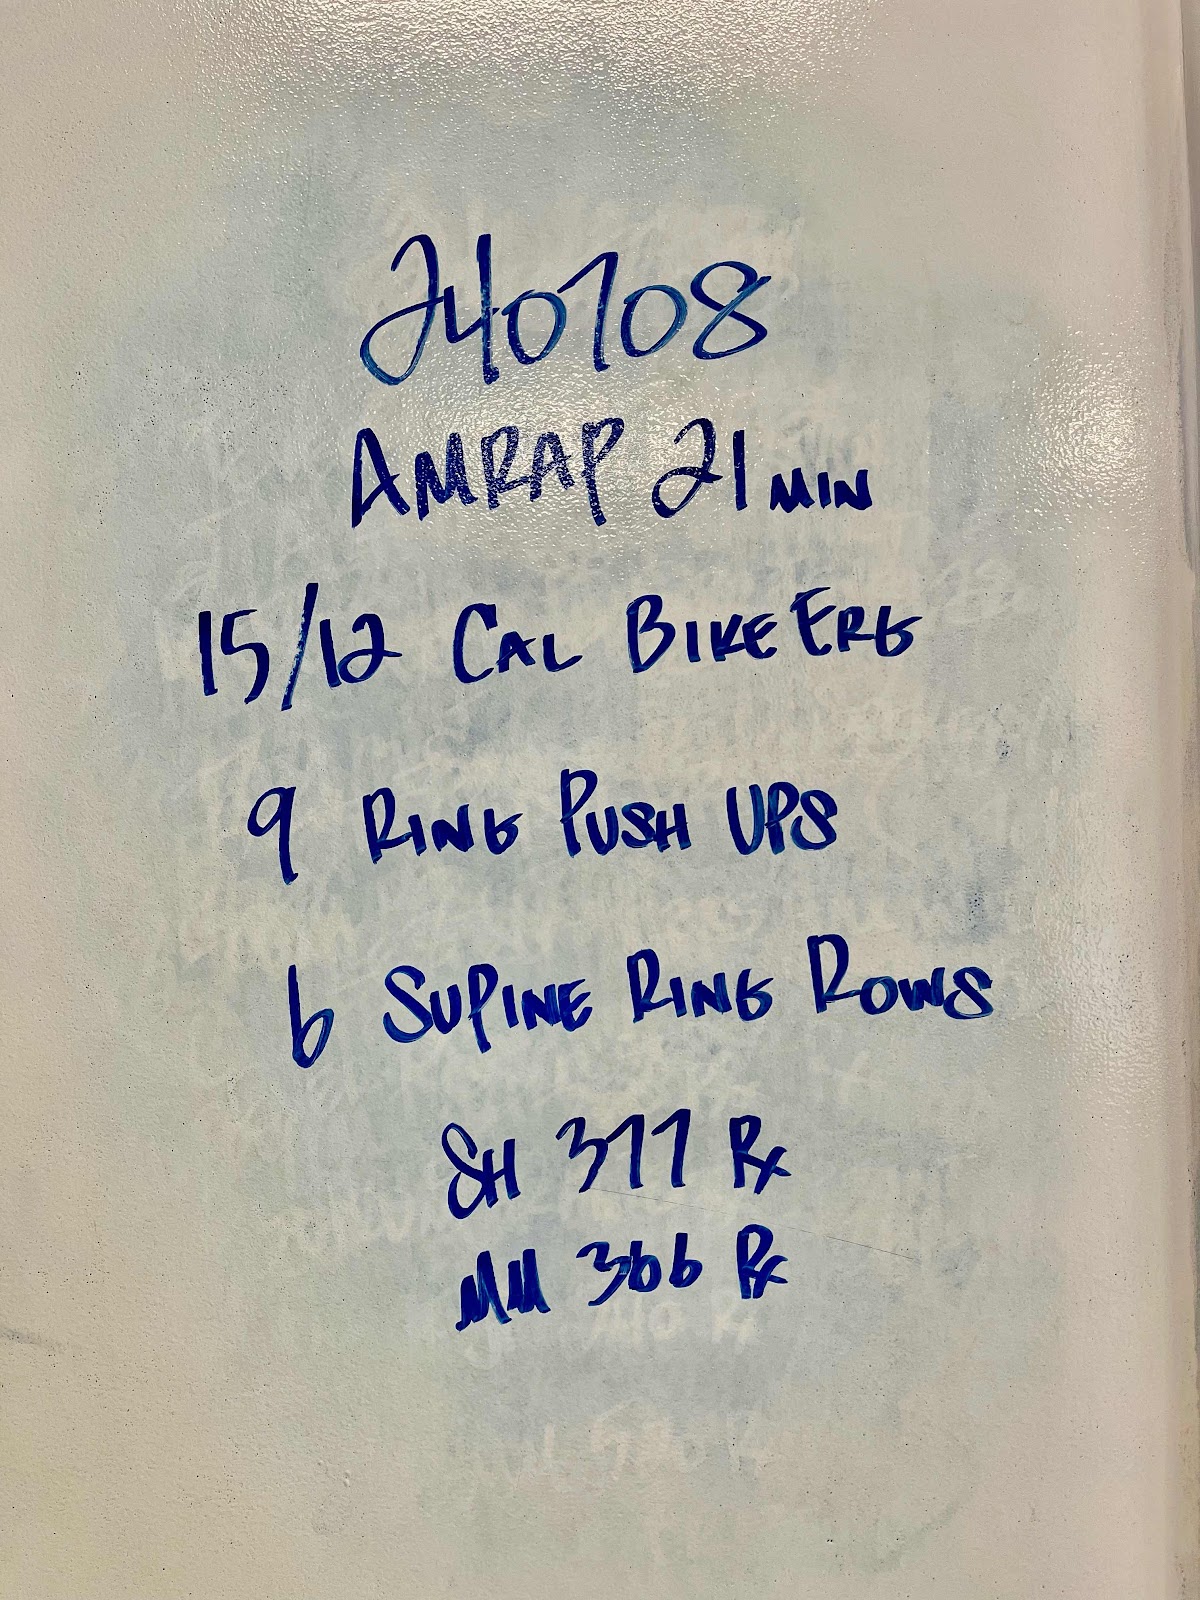 240708
AMRAP 21 MIN
15/12 CAL BIKE ERG
9 RING PUSH UPS
6 SUPINE RING ROWS
SH 377 Rx
MM 366 Rx